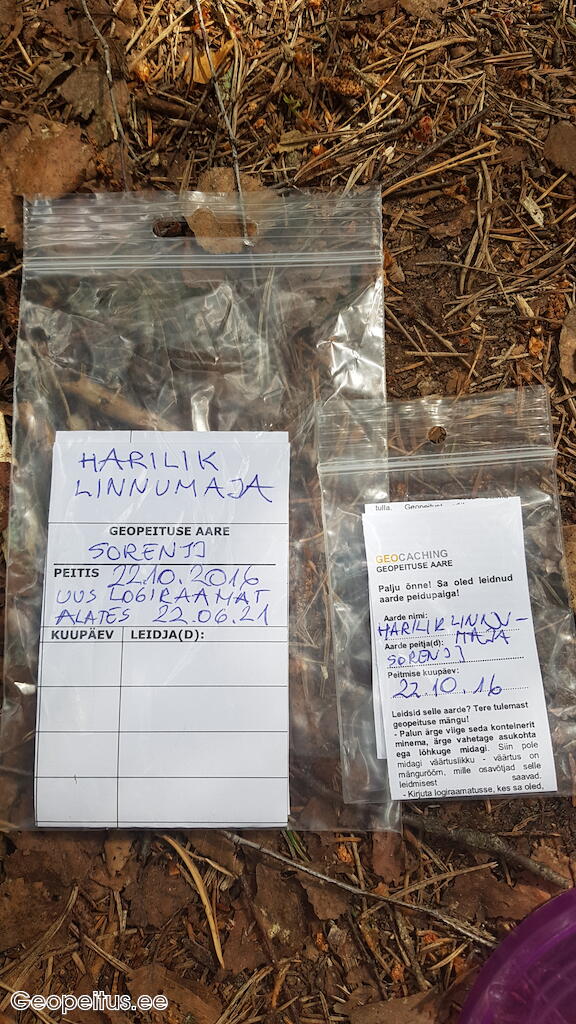 HARILIK
LINNUMAJA
GEOPEITUSE AARE
SORENJJ
PEITIS 22.10.2016
UUS LOGIRAAMAT
ALATES 22.06.21
KUUPÄEV LEIDJA(D):
tulla.
GEOCACHING
GEOPEITUSE AARE
Palju õnne! Sa oled leidnud
aarde peidupaiga!
Aarde nimi:
HARILIK LINNU-
MAJA
Aarde peitja(d):
SORENJJ
Peitmise kuupäev:
22.10.16
Leidsid selle aarde? Tere tulemast
geopeituse mängu!
- Palun ärge viige seda konteinerit
minema, ärge vahetage asukohta
ega lõhkuge midagi. Siin pole
midagi väärtuslikku - väärtus on
mängurõõm, mille osavõtjad selle
leidmisest saavad.
- Kirjuta logiraamatusse, kes sa oled,
Geopeitus.ee